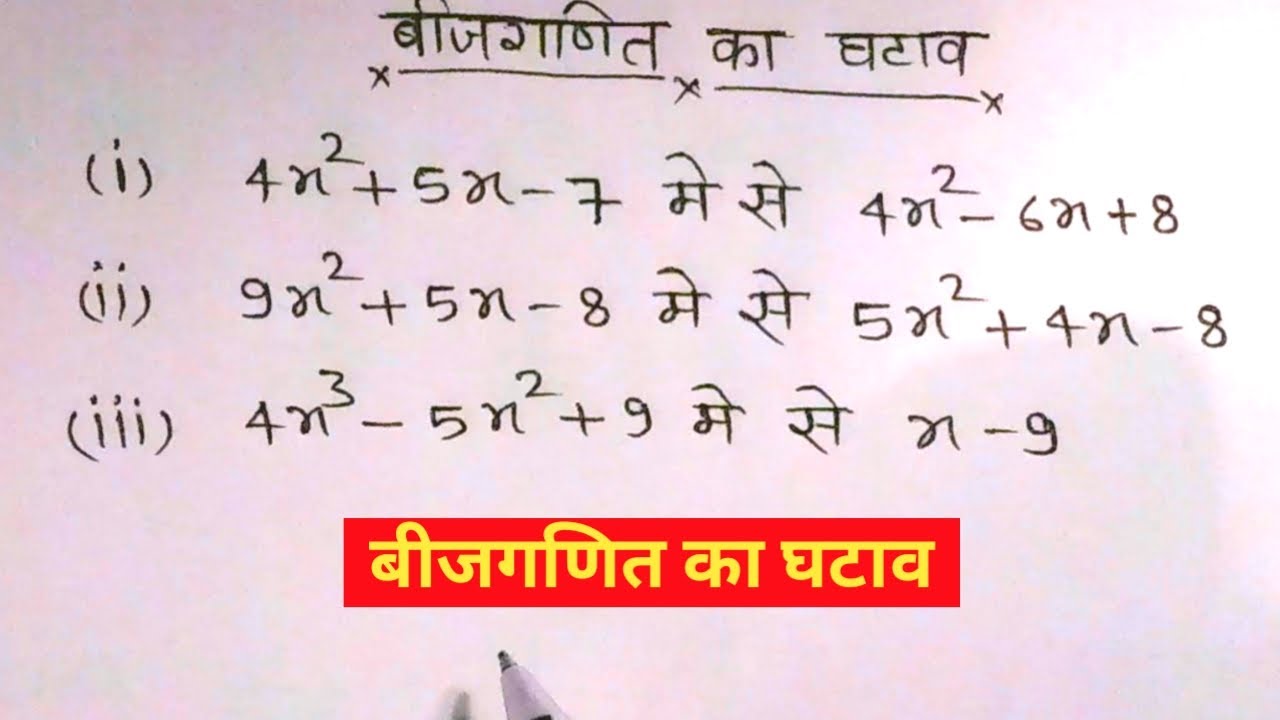 बीजगणित का घटाव
(i) 4x² + 5x - 7 मे से 4x² - 6x + 8
(ii) 9x² + 5x - 8 मे से 5x² + 4x - 8
(iii) 4x³ - 5x² + 9 मे से x - 9
बीजगणित का घटाव